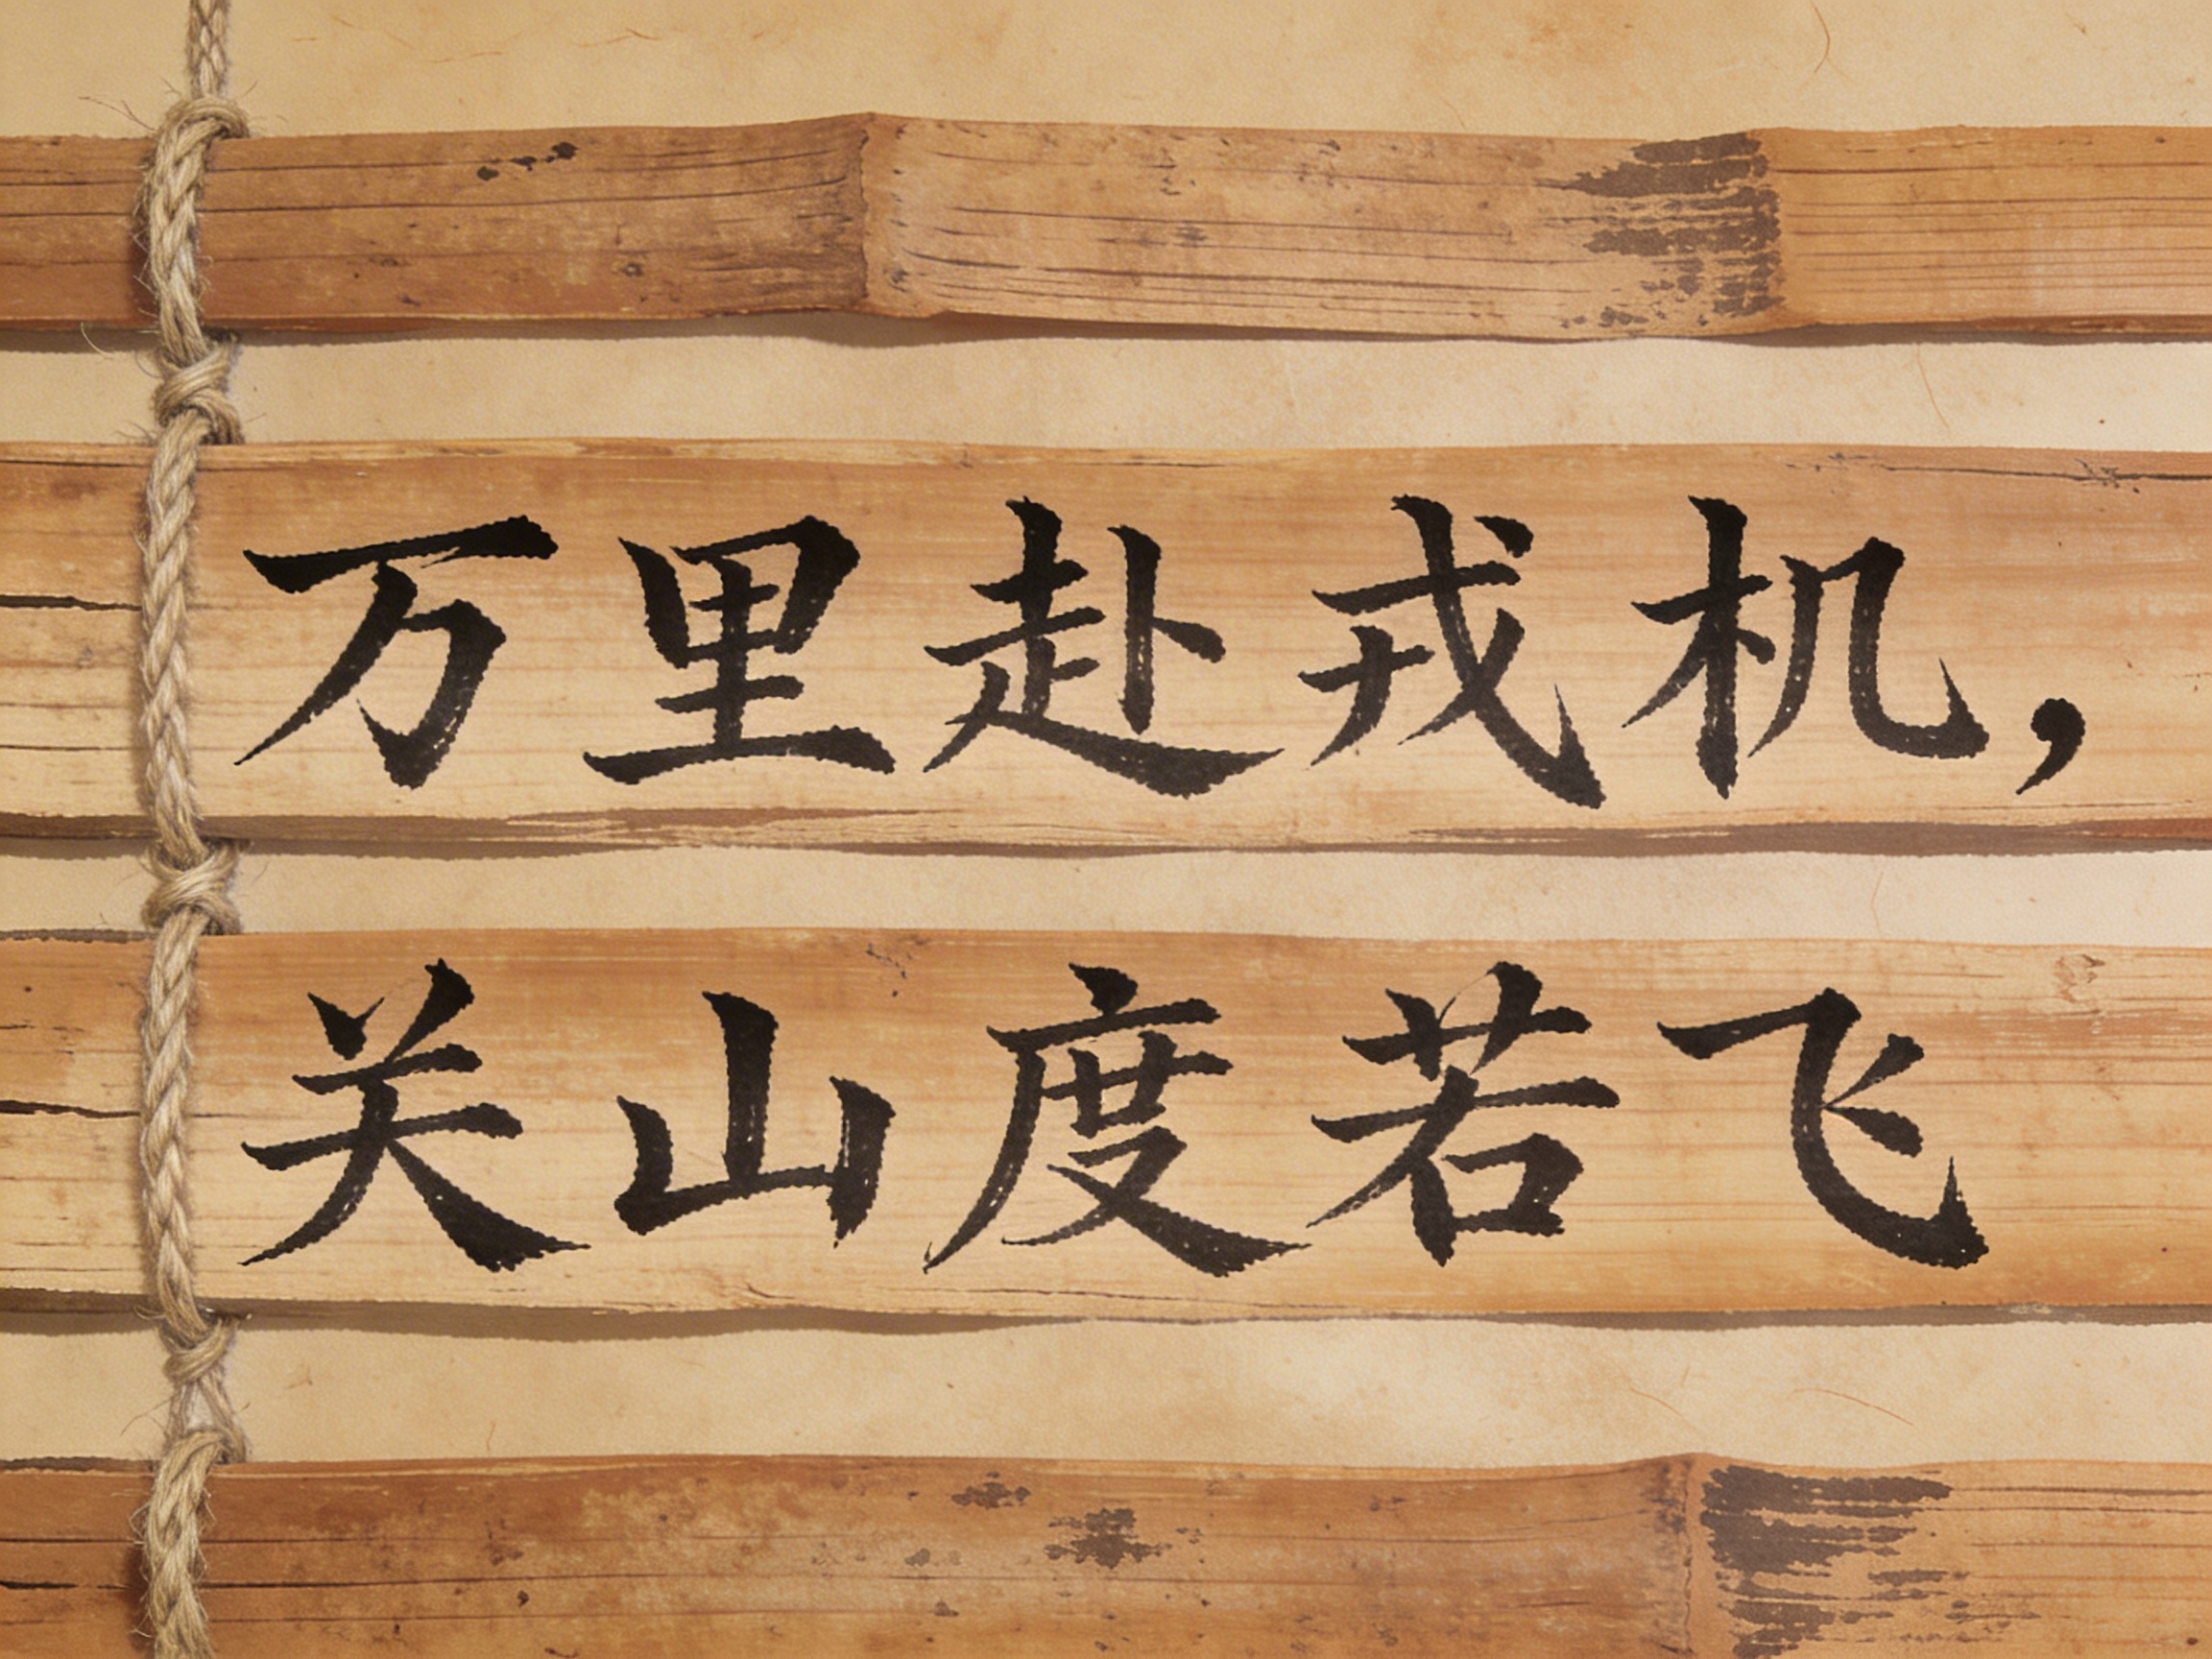 万里赴戎机，
关山度若飞